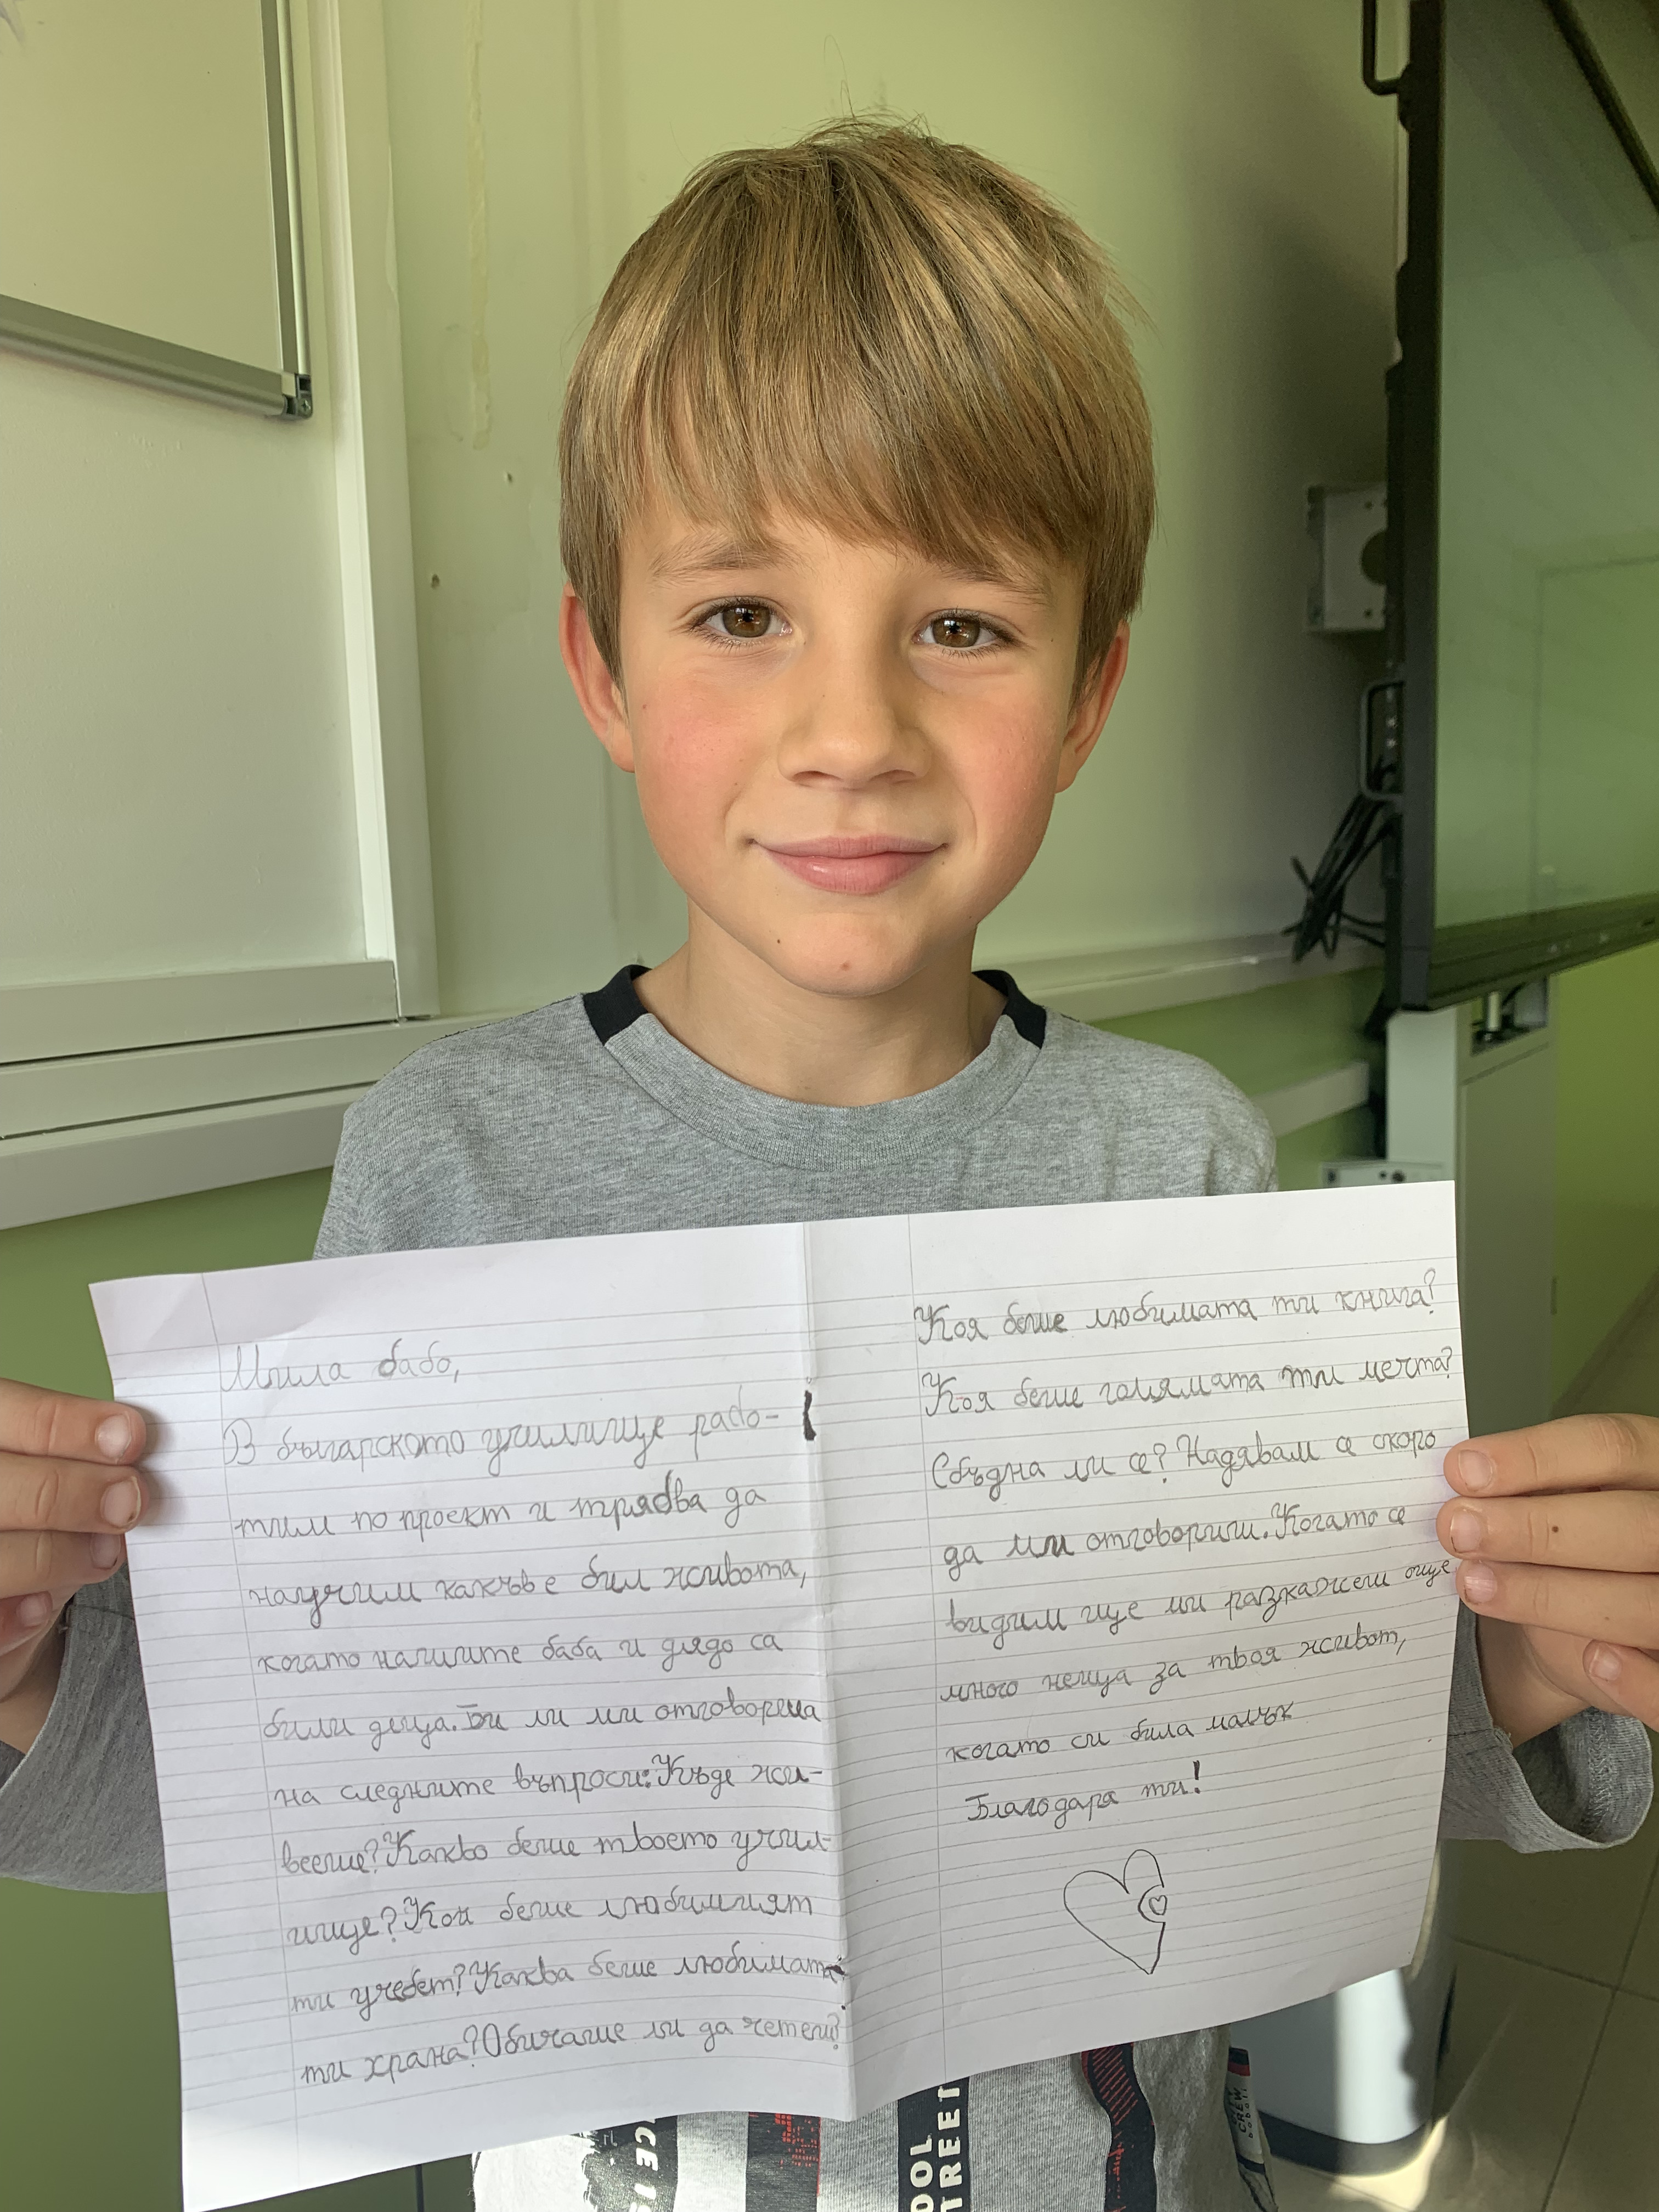 Мила бабо,
В българското училище рабо-
тим по проект и трябва да
научим какъв е бил живота,
когато нашите баба и дядо са
били деца. Би ли ми отговорила
на следните въпроси: Къде жи-
вееше? Какво беше твоето учил-
ище? Кой беше любимият
ти учебет? Каква беше любимата
ти храна? Обичаше ли да четеш?
Коя беше любимата ти книга?
Коя беше голямата ти мечта?
Сбъдна ли се? Надявам се скоро
да ми отговориш. Когато се
видим ще ми разкажеш още
много неща за твоя живот,
когато си била малък
Благодаря ти!
OOL
TREET
CREW